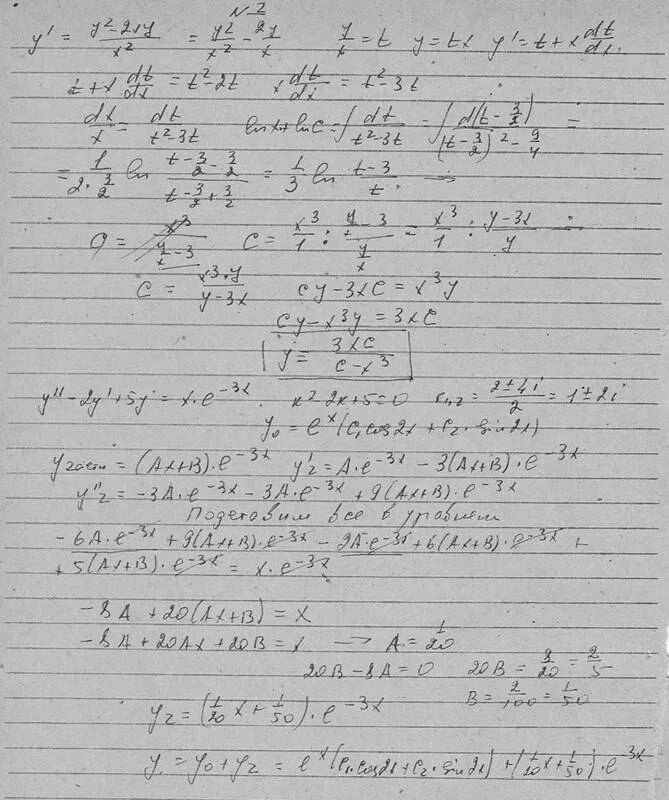 N 2
y' = (y²-2xy)/x² = y²/x² - 2y/x    y/x = t   y = tx   y' = t + x dt/dx.
t + x dt/dx = t² - 2t    x dt/dx = t² - 3t
dx/x = dt/(t²-3t)    lnx + lnC = ∫ dt/(t²-3t) = ∫ d(t - 3/2)/((t - 3/2)² - 9/4) =
= 1/(2·3/2) ln (t - 3/2 - 3/2)/(t - 3/2 + 3/2) = 1/3 ln (t-3)/t. →
C = x³/1 : (y/x - 3)/(y/x) = x³/1 : (y-3x)/y =
C = x³·y/(y-3x)    Cy - 3xC = x³y
Cy - x³y = 3xC
y = 3xC/(C-x³)
y'' - 2y' + 5y = x·e^(-3x).   x² - 2x + 5 = 0   k₁,₂ = (2±4i)/2 = 1±2i
y₀ = e^x (C₁cos2x + C₂·sin2x)
yчастн = (Ax+B)·e^(-3x)   y'₂ = A·e^(-3x) - 3(Ax+B)·e^(-3x)
y''₂ = -3A·e^(-3x) - 3A·e^(-3x) + 9(Ax+B)·e^(-3x)
Подставим все в уравнен
-6A·e^(-3x) + 9(Ax+B)·e^(-3x) - 2A·e^(-3x) + 6(Ax+B)·e^(-3x) +
+ 5(Ax+B)·e^(-3x) = x·e^(-3x)
-8A + 20(Ax+B) = x
-8A + 20Ax + 20B = x → A = 1/20
20B - 8A = 0   20B = 8/20 = 2/5
B = 2/100 = 1/50
y₂ = (1/20 x + 1/50)·e^(-3x)
y = y₀ + y₂ = e^x (C₁·cos2x + C₂·sin2x) + (1/20 x + 1/50)·e^(-3x)